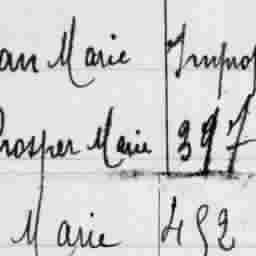 an Marie Impro
Prosper Marie 397
Marie 492